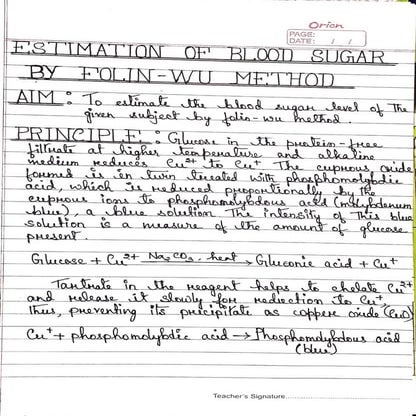 Orion
PAGE:
DATE: / /
ESTIMATION OF BLOOD SUGAR
BY FOLIN-WU METHOD
AIM : To estimate the blood sugar level of the
given subject by folin-wu method.
PRINCIPLE : Glucose in the protein-free
filtrate at higher temperature and alkaline
medium reduces Cu2+ to Cu+ The cuprous oxide
formed is in turn treated with phosphomolybdic
acid, which is reduced proportionally by the
cuprous ions to phosphomolybdous acid (molybdenum
blue), a blue solution. The intensity of this blue
solution is a measure of the amount of glucose
present.
Glucose + Cu2+ Na2CO3, heat → Gluconic acid + Cu+
Tartrate in the reagent helps to chelate Cu2+
and release it slowly for reduction to Cu+,
thus, preventing its precipitate as copper oxide (CuO)
Cu+ + phosphomolybdic acid → Phosphomolybdous acid
(blue)
Teacher's Signature